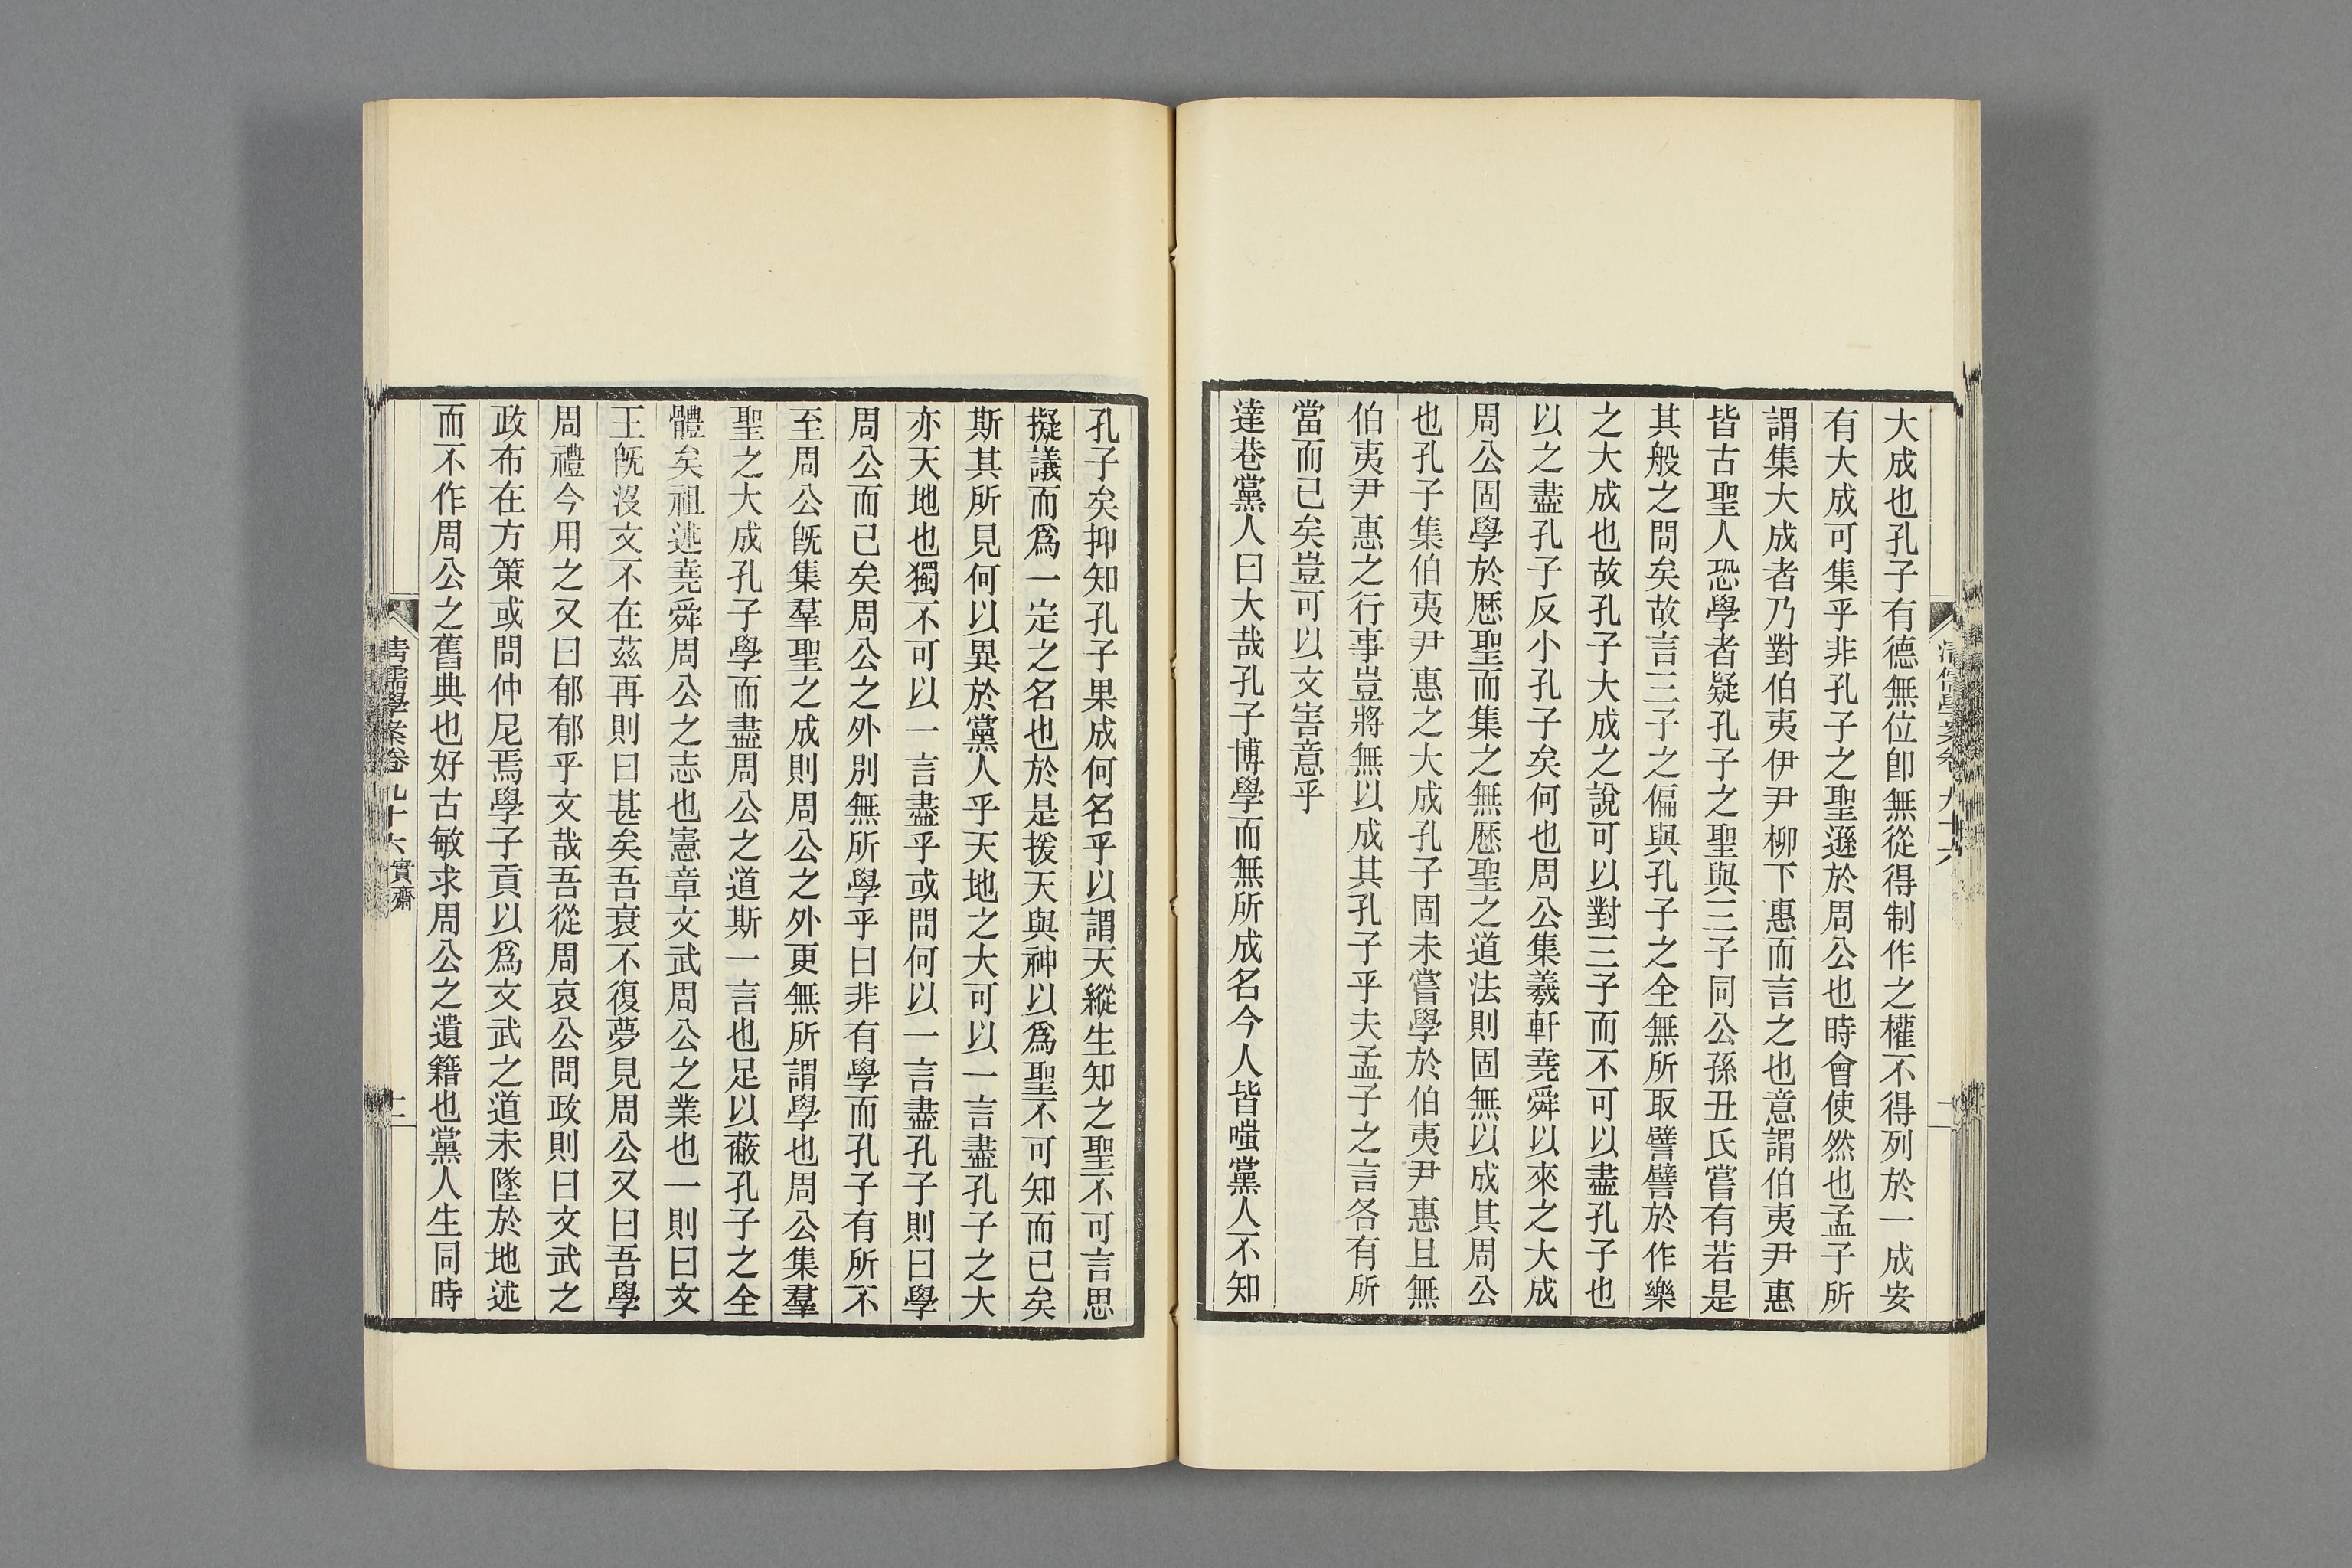 大成也孔子有德無位卽無從得制作之權不得列於一成安
有大成可集乎非孔子之聖遜於周公也時會使然也孟子所
謂集大成者乃對伯夷伊尹柳下惠而言之也意謂伯夷尹惠
皆古聖人恐學者疑孔子之聖與三子同公孫丑氏嘗有若是
其般之問矣故言三子之偏與孔子之全無所取譬譬於作樂
之大成也故孔子大成之說可以對三子而不可以盡孔子也
以之盡孔子反小孔子矣何也周公集羲軒堯舜以來之大成
周公固學於歷聖而集之無歷聖之道法則固無以成其周公
也孔子集伯夷尹惠之大成孔子固未嘗學於伯夷尹惠且無
伯夷尹惠之行事豈將無以成其孔子乎夫孟子之言各有所
當而已矣豈可以文害意乎
達巷黨人曰大哉孔子博學而無所成名今人皆嗤黨人不知
孔子矣抑知孔子果成何名乎以謂天縱生知之聖不可言思
擬議而爲一定之名也於是援天與神以爲聖不可知而已矣
斯其所見何以異於黨人乎天地之大可以一言盡孔子之大
亦天地也獨不可以一言盡乎或問何以一言盡孔子則曰學
周公而已矣周公之外別無所學乎曰非有學而孔子有所不
至周公旣集羣聖之成則周公之外更無所謂學也周公集羣
聖之大成孔子學而盡周公之道斯一言也足以蔽孔子之全
體矣祖述堯舜周公之志也憲章文武周公之業也一則曰文
王旣沒文不在茲再則曰甚矣吾衰不復夢見周公又曰吾學
周禮今用之又曰郁郁乎文哉吾從周哀公問政則曰文武之
政布在方策或問仲尼焉學子貢以爲文武之道未墜於地述
而不作周公之舊典也好古敏求周公之遺籍也黨人生同時
清儒學案卷九十六 實齋